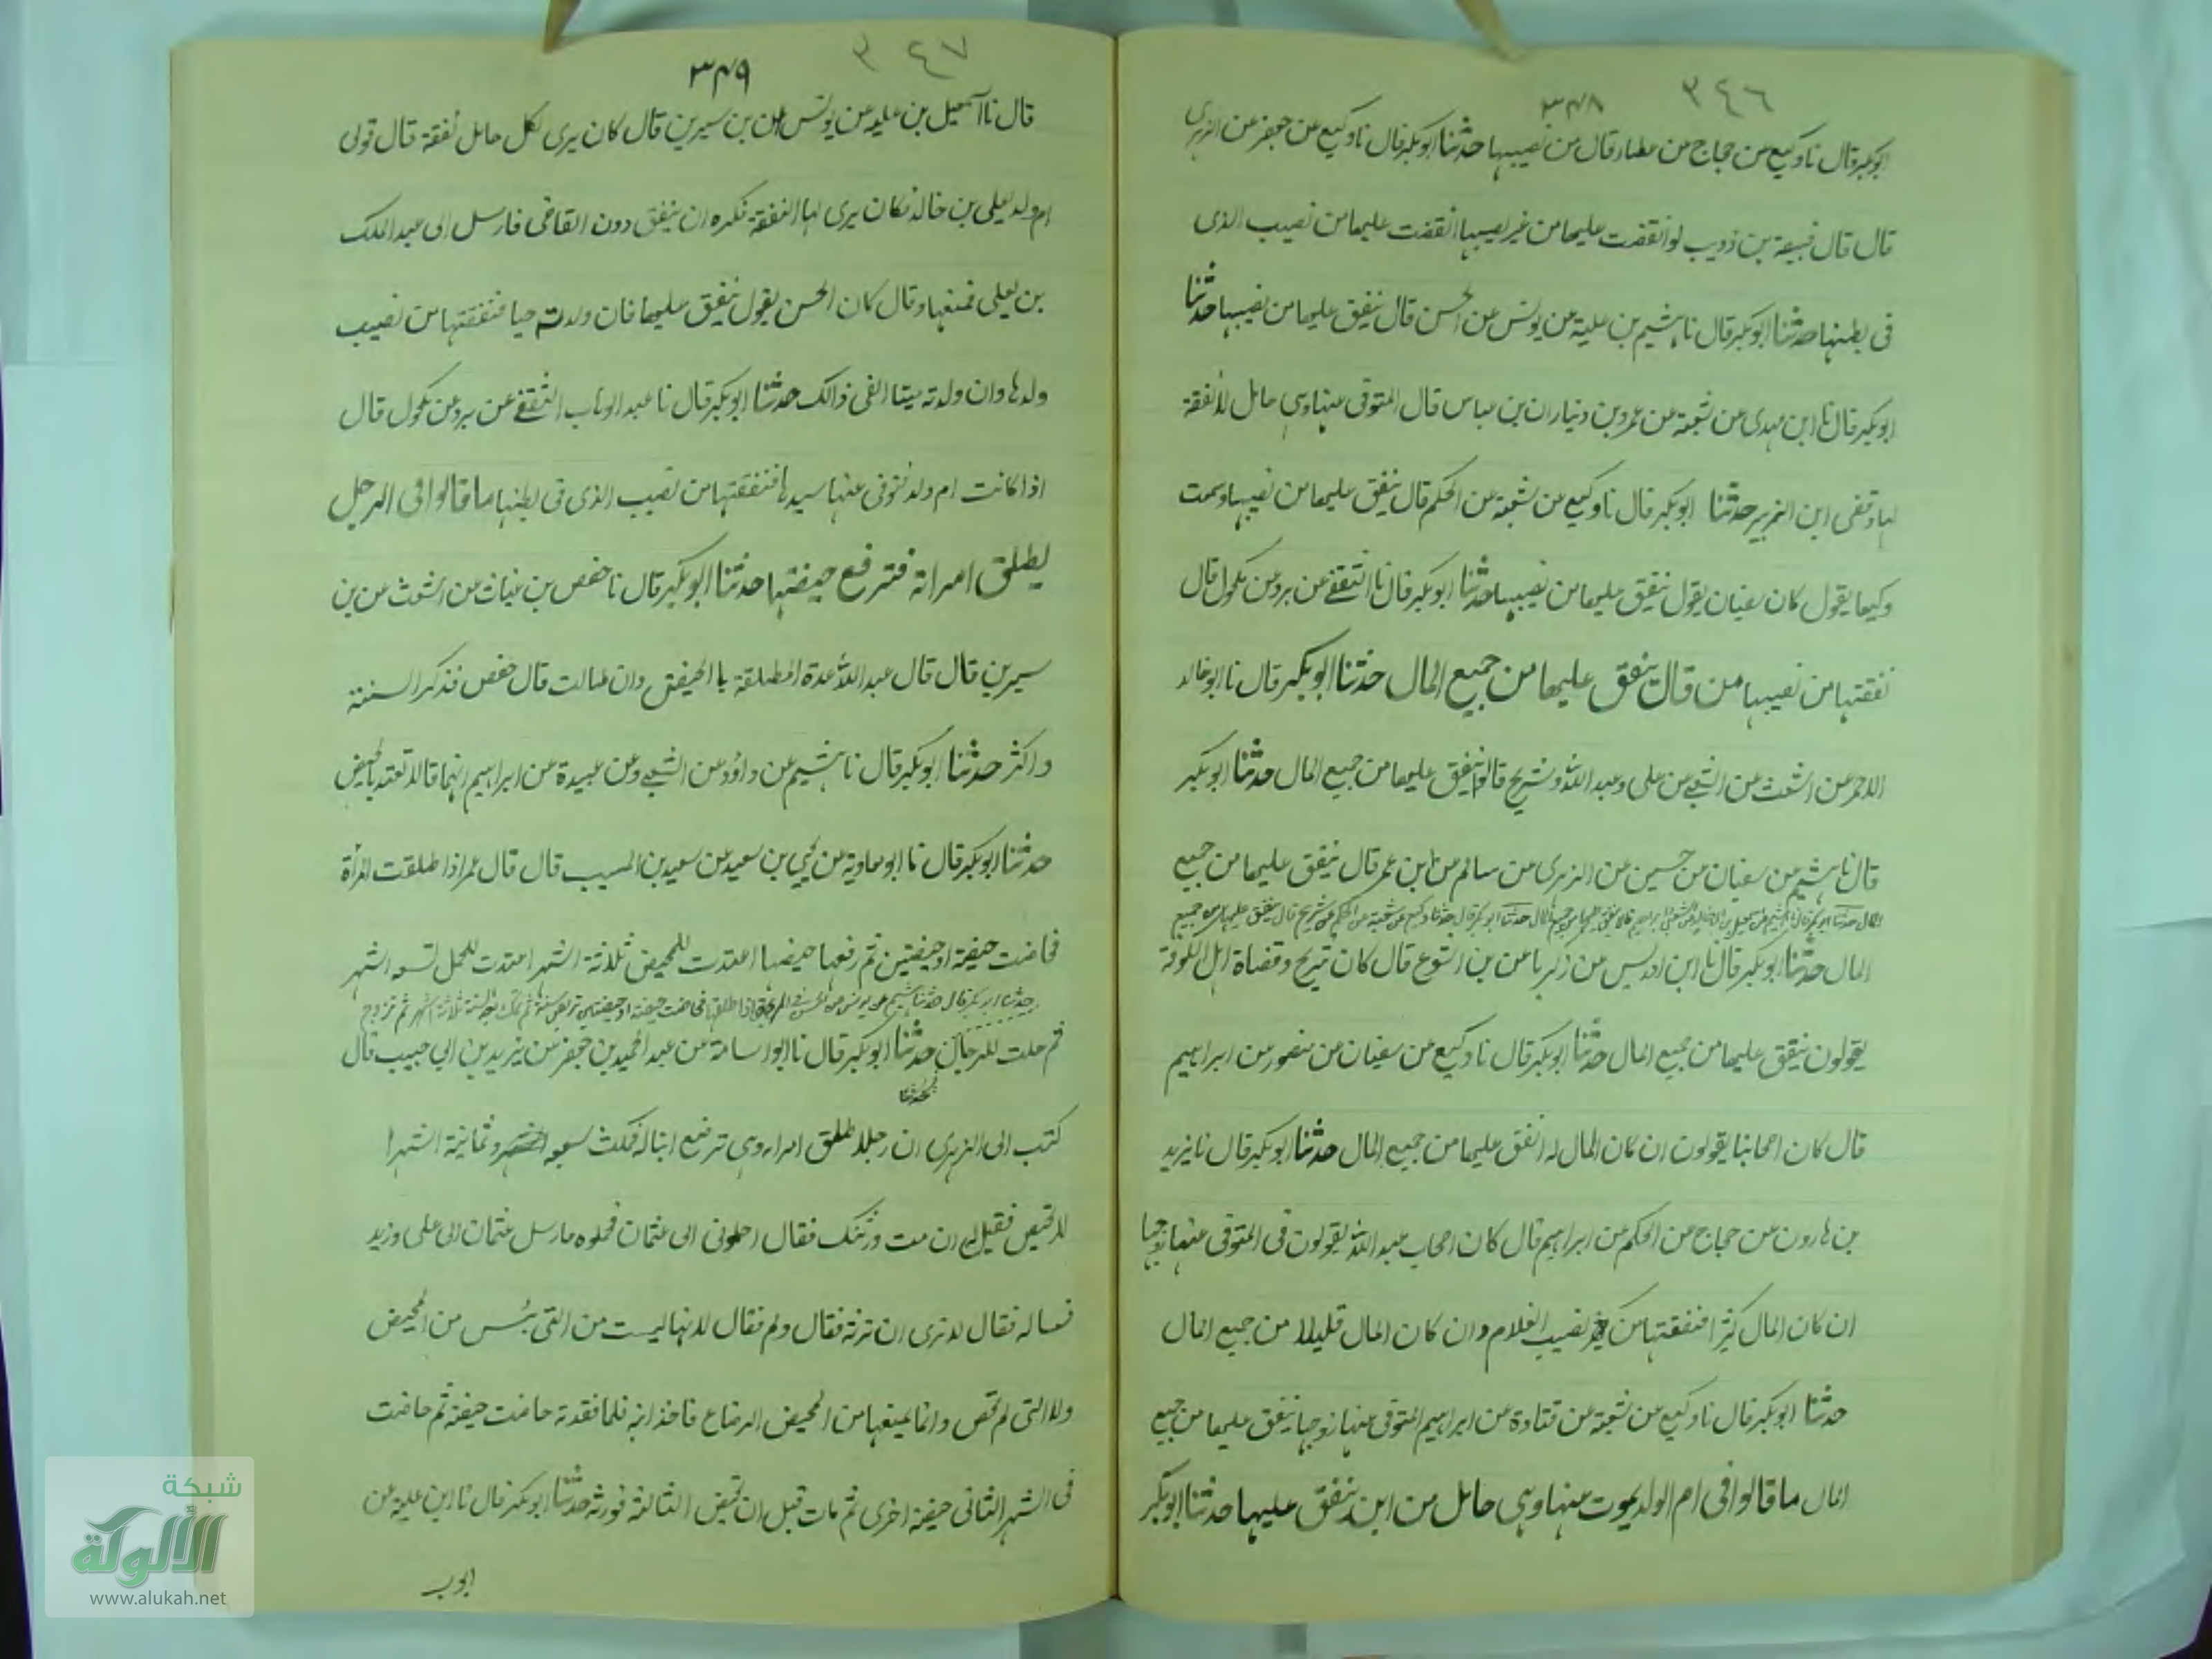 ٣٤٦
٣٤٨
ابوبكر قال نا وكيع عن حجاج عن عطاء قال من نصيبها حدثنا ابوبكر قال نا وكيع عن جعفر عن الزهرى
قال قال قبيصة بن ذويب لو انفقت عليها من غير نصيبها انفقت عليها من نصيب الذى
فى بطنها حدثنا ابوبكر قال نا هشيم بن علية عن يونس عن الحسن قال ينفق عليها من نصيبها حدثنا
ابوبكر قال نا ابن مهدى عن شعبة عن عمرو بن دينار ان بن عباس قال المتوفى عنها وهى حامل لا نفقة
لها وقضى ابن الزبير حدثنا ابوبكر قال نا وكيع عن شعبة عن الحكم قال ينفق عليها من نصيبها وسمعت
وكيعا يقول كان سفيان يقول ينفق عليها من نصيبها حدثنا ابوبكر قال نا الثقفى عن برد عن مكحول قال
نفقتها من نصيبها من قال ينفق عليها من جميع المال حدثنا ابوبكر قال نا ابو خالد
الاحمر عن اشعث عن الشعبى عن على وعبد الله وشريح قالوا ينفق عليها من جميع المال حدثنا ابوبكر
قال نا هشيم عن سفيان من حسين عن الزهرى عن سالم عن ابن عمر قال ينفق عليها من جميع
المال حدثنا ابوبكر قال حدثنا وكيع عن شعبة عن الحكم عن شريح قال ينفق عليها من جميع
المال حدثنا ابوبكر قال نا ابن ادريس عن زكريا عن بن اشوع قال كان شريح وقضاة اهل الكوفة
يقولون ينفق عليها من جميع المال حدثنا ابوبكر قال نا وكيع عن سفيان عن منصور عن ابراهيم
قال كان اصحابنا يقولون ان كان المال له انفق عليها من جميع المال حدثنا ابوبكر قال نا يزيد
بن هارون عن حجاج عن الحكم عن ابراهيم قال كان اصحاب عبد الله يقولون فى المتوفى عنها زوجها
ان كان المال كثيرا فنفقتها من نصيب الغلام وان كان المال قليلا من جميع المال
حدثنا ابوبكر قال نا وكيع عن شعبة عن قتادة عن ابراهيم المتوفى عنها زوجها ينفق عليها من جميع
المال ما قالوا فى ام الولد يموت عنها وهى حامل من اين ينفق عليها حدثنا ابوبكر
٣٤٧
٣٤٩
قال نا اسمعيل بن علية عن يونس عن بن سيرين قال كان يرى لكل حامل نفقة قال قولى
ام ولد ليعلى بن خالد فكان يرى لها النفقة فكره ان ينفق دون القاضى فارسل الى عبد الملك
بن يعلى فمنعها وقال كان الحسن يقول ينفق عليها فان ولدته حيا فنفقتها من نصيب
ولدها وان ولدته ميتا الغى ذالك حدثنا ابوبكر قال نا عبد الوهاب الثقفى عن برد عن مكحول قال
اذا كانت ام ولد توفى عنها سيدها فنفقتها من نصيب الذى فى بطنها ما قالوا فى الرجل
يطلق امراته فترفع حيضتها حدثنا ابوبكر قال نا حفص بن غياث عن اشعث عن بن
سيرين قال قال عبد الله عدة المطلقة با الحيض وان طالت قال حفص فذكر السنة
واكثر حدثنا ابوبكر قال نا هشيم عن داؤد عن الشعبى وعن عبيدة عن ابراهيم انهما قالا تعتد بالحيض
حدثنا ابوبكر قال نا ابو معاوية عن يحيى بن سعيد عن سعيد بن المسيب قال قال عمر اذا طلقت المرأة
فحاضت حيضة او حيضتين ثم رفعها حيضها اعتدت للمحيض ثلاثة اشهر اعتدت للحمل تسعه اشهر
حدثنا ابوبكر قال حدثنا هشيم عن يونس عن الحسن فى المرءة اذا طلقها فحاضت حيضة او حيضتين تربص سنة ثم تزوج
ثم حلت للرجال حدثنا ابوبكر قال نا ابو اسامة عن عبد الحميد بن جعفر عن يزيد بن ابى حبيب قال
كتب الى الزهرى ان رجلا طلق امراته وهى ترضع ابنا له فمكث سبعه وثمانية اشهرا
لا تحيض فقيل له ان مت ورثتك فقال احملونى الى عثمان فحملوه فارسل عثمان الى على وزيد
فساله فقال لا نرى ان ترثه فقال ولم فقال لانها ليست من التى يئس من المحيض
ولا التى لم تحض وانما يمنعها من المحيض الرضاع فاخذ ابنه فلما فقدته حاضت حيضة ثم حاضت
فى الشهر الثانى حيضة اخرى ثم مات قبل ان تحيض الثالثة فورثه حدثنا ابوبكر قال نا ابن علية عن
ايوب
شبكة
الألوكة
www.alukah.net